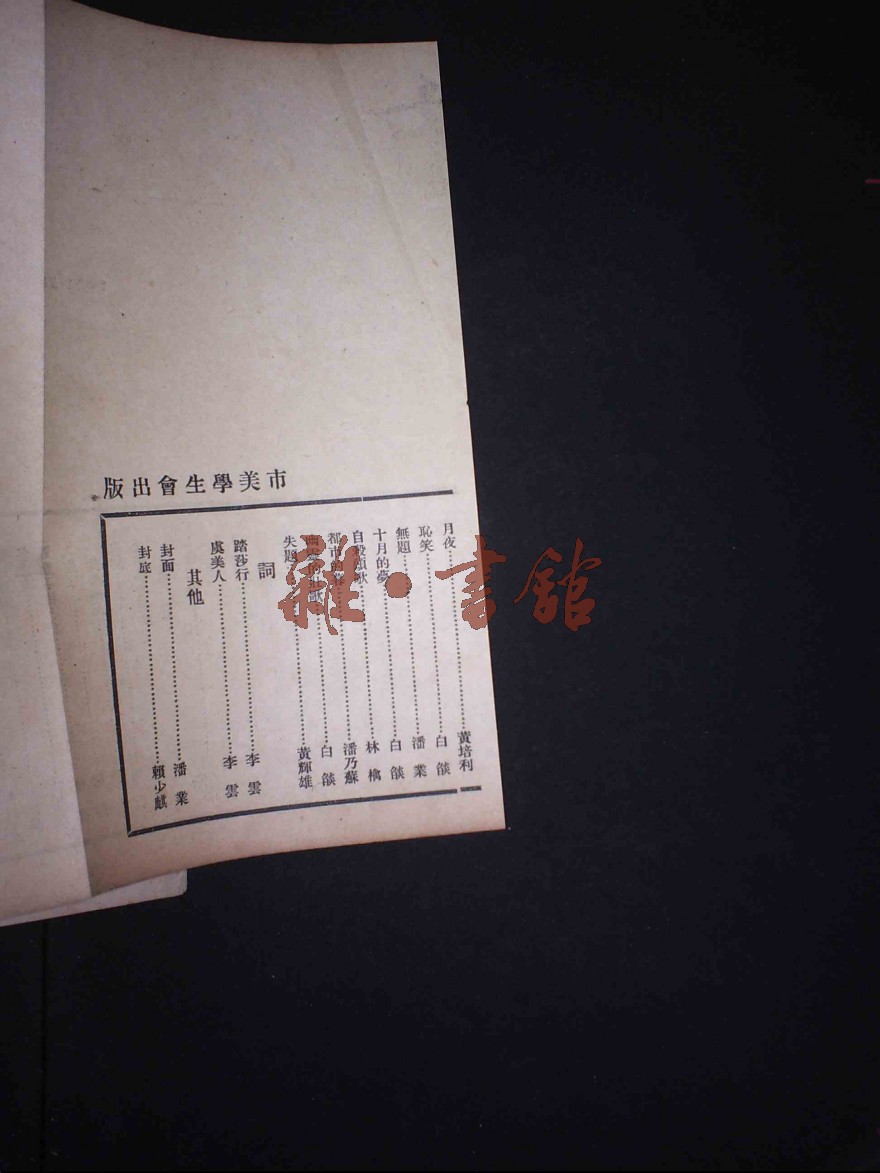 市美學生會出版
月夜……黃培利
恥笑……白燄
無題……潘業
十月的夢……林檎
自殺頌歌……潘乃蘇
都市的……白燄
失題……黃輝雄
詞
踏莎行……李雲
虞美人……李雲
其他
封面……潘業
封底……賴少麒
雜·書館